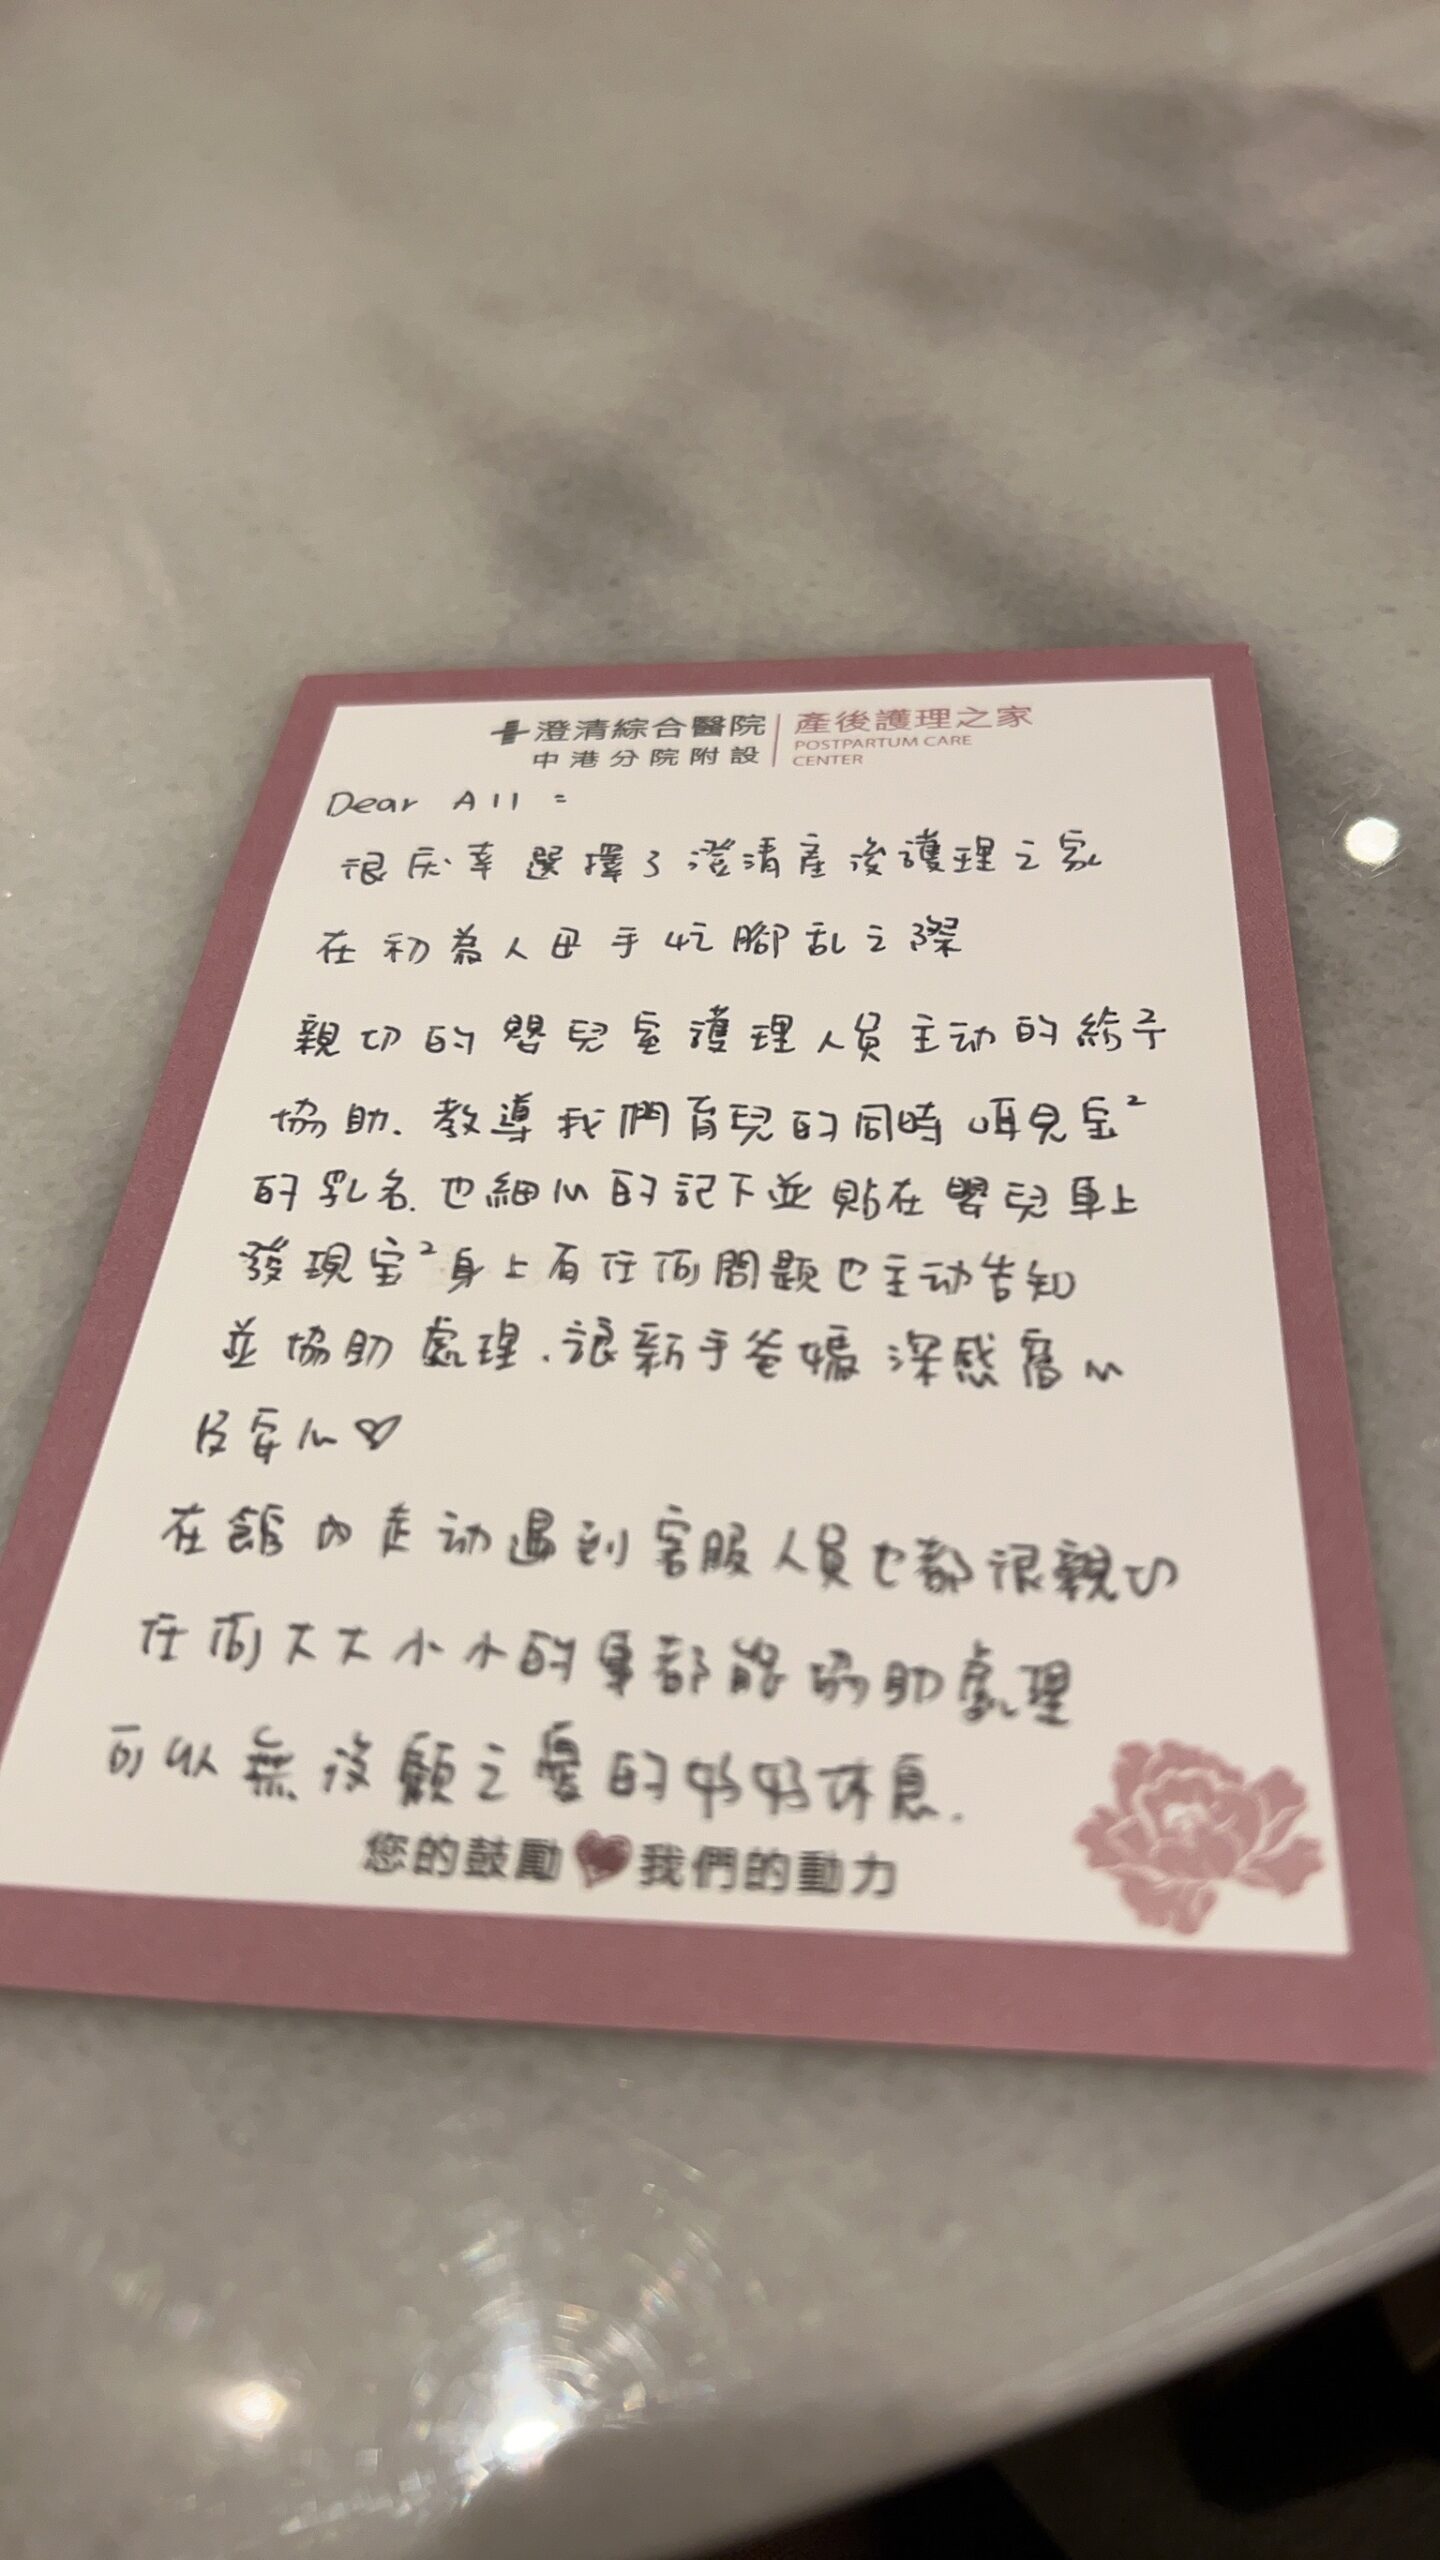 澄清綜合醫院 產後護理之家
中港分院附設 POSTPARTUM CARE
CENTER
Dear All =
很庆幸選擇了澄清產後護理之家
在初為人母手忙腳乱之際
親切的嬰兒室護理人員主动的給予
協助.教導我們育兒的同時 喊寶²
的乳名.也細心的記下並貼在嬰兒車上
發現宝²身上有任何問題也主动告知
並協助處理.讓新手爸媽深感窩心
及安心♡
在館內走动遇到客服人員也都很親切
任何大大小小的事都能協助處理
可以無後顧之憂的好好休息.
您的鼓勵❤我們的動力